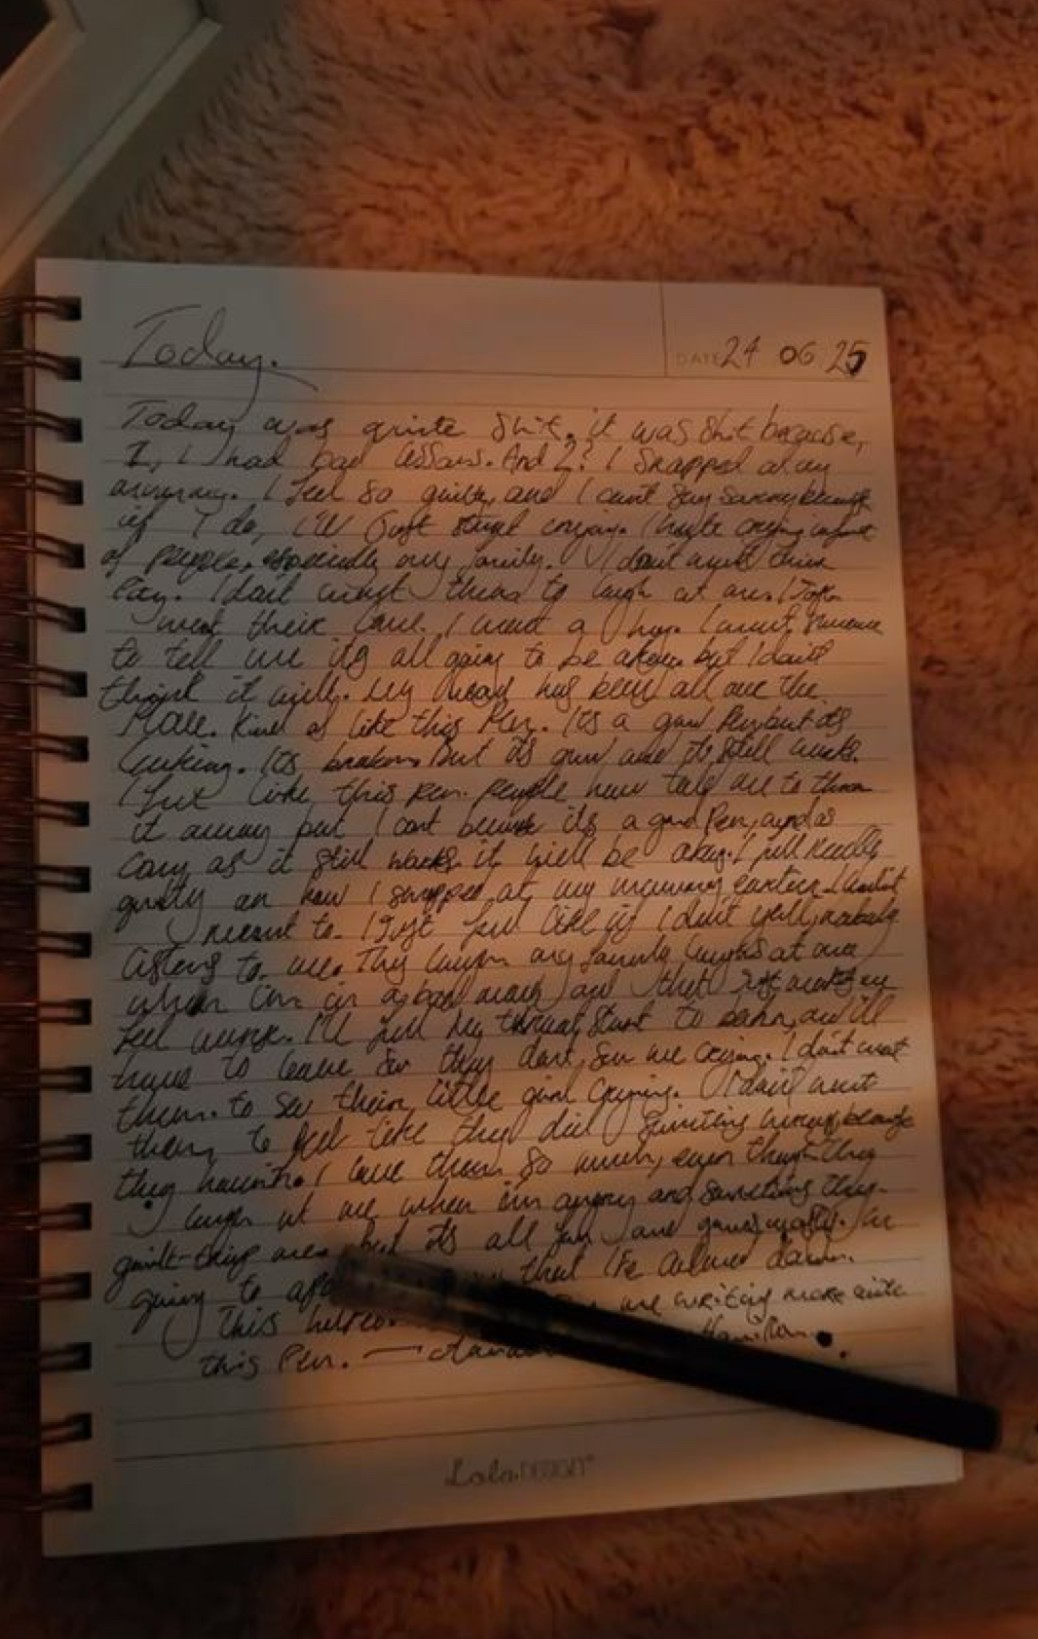 Today.
DATE 24 06 25
Today was quite shit, it was shit because,
1, I had bad lessons. And 2? I snapped at my
mummy. I feel so guilty and I can't say sorry because
if I do, I'll just start crying. I hate crying infront
of people, especially my family. I don't want their
Pity. I don't want them to laugh at me. I Just
want their love. I want a hug. I want someone
to tell me its all going to be okay. but I don't
think it will. My head has been all over the
Place. Kind of like this Pen. Its a good Pen but its
leaking. Its broken, But its good and it still works.
I Just like this pen. people have told me to throw
it away but I cant because its a good Pen, and as
long as it still works it will be okay. I feel really
guilty on how I snapped at my mummy earlier. I didn't
meant to. I Just feel like if I don't yell, nobody
listens to me. They laugh. my family laughs at me
when I'm in a bad mood, and that makes me
feel worse. I'll feel my throat start to burn, and I'll
have to leave so they dont see me crying. I don't want
them to see their little girl crying. I don't want
them to feel like they did something wrong because
they haven't. I love them so much, even though they
laugh at me when im angry and sometimes they
guilt-trip me, but its all fun and games really. Im
going to that I've calmed down.
This me writing more with
this Pen. — Hamilton.
Lola DESIGN